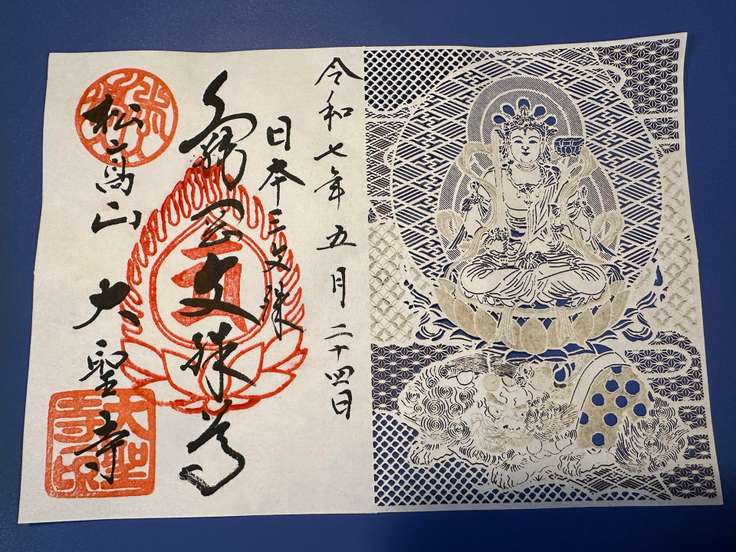 令和七年五月二十四日
日本三文殊
亀岡文殊尊
松高山 大聖寺
大聖寺印